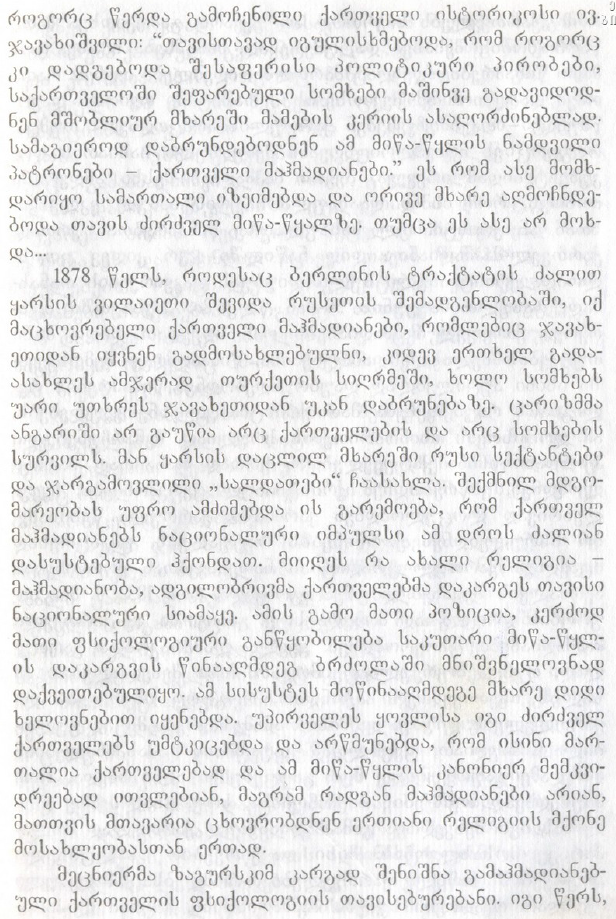 როგორც წერდა გამოჩენილი ქართველი ისტორიკოსი ივ.
ჯავახიშვილი: “თავისთავად იგულისხმებოდა, რომ როგორც
კი დადგებოდა შესაფერისი პოლიტიკური პირობები,
საქართველოში შეფარებული სომხები მაშინვე გადავიდოდ-
ნენ მშობლიურ მხარეში მამების კერიის ასაღორძინებლად.
სამაგიეროდ დაბრუნდებოდნენ ამ მიწა-წყლის ნამდვილი
პატრონები – ქართველი მაჰმადიანები.” ეს რომ ასე მომხ-
დარიყო სამართალი იზეიმებდა და ორივე მხარე აღმოჩნდე-
ბოდა თავის ძირძველ მიწა-წყალზე. თუმცა ეს ასე არ მოხ-
და...
1878 წელს, როდესაც ბერლინის ტრაქტატის ძალით
ყარსის ვილაიეთი შევიდა რუსეთის შემადგენლობაში, იქ
მაცხოვრებელი ქართველი მაჰმადიანები, რომლებიც ჯავახ-
ეთიდან იყვნენ გადმოსახლებულნი, კიდევ ერთხელ გადა-
ასახლეს ამჯერად თურქეთის სიღრმეში, ხოლო სომხებს
უარი უთხრეს ჯავახეთიდან უკან დაბრუნებაზე. ცარიზმმა
ანგარიში არ გაუწია არც ქართველების და არც სომხების
სურვილს. მან ყარსის დაცლილ მხარეში რუსი სექტანტები
და ჯარგამოვლილი „სალდათები“ ჩაასახლა. შექმნილ მდგო-
მარეობას უფრო ამძიმებდა ის გარემოება, რომ ქართველ
მაჰმადიანებს ნაციონალური იმპულსი ამ დროს ძალიან
დასუსტებული ჰქონდათ. მიიღეს რა ახალი რელიგია –
მაჰმადიანობა, ადგილობრივმა ქართველებმა დაკარგეს თავისი
ნაციონალური სიამაყე. ამის გამო მათი პოზიცია, კერძოდ
მათი ფსიქოლოგიური განწყობილება საკუთარი მიწა-წყლ-
ის დაკარგვის წინააღმდეგ ბრძოლაში მნიშვნელოვნად
დაქვეითებულიყო. ამ სისუსტეს მოწინააღმდეგე მხარე დიდი
ხელოვნებით იყენებდა. უპირველეს ყოვლისა იგი ძირძველ
ქართველებს უმტკიცებდა და არწმუნებდა, რომ ისინი მარ-
თალია ქართველებად და ამ მიწა-წყლის კანონიერ მემკვი-
დრეებად ითვლებიან, მაგრამ რადგან მაჰმადიანები არიან,
მათთვის მთავარია ცხოვრობდნენ ერთიანი რელიგიის მქონე
მოსახლეობასთან ერთად.
მეცნიერმა ზაგურსკიმ კარგად შენიშნა გამაჰმადიანებ-
ული ქართველის ფსიქოლოგიის თავისებურებანი. იგი წერს,